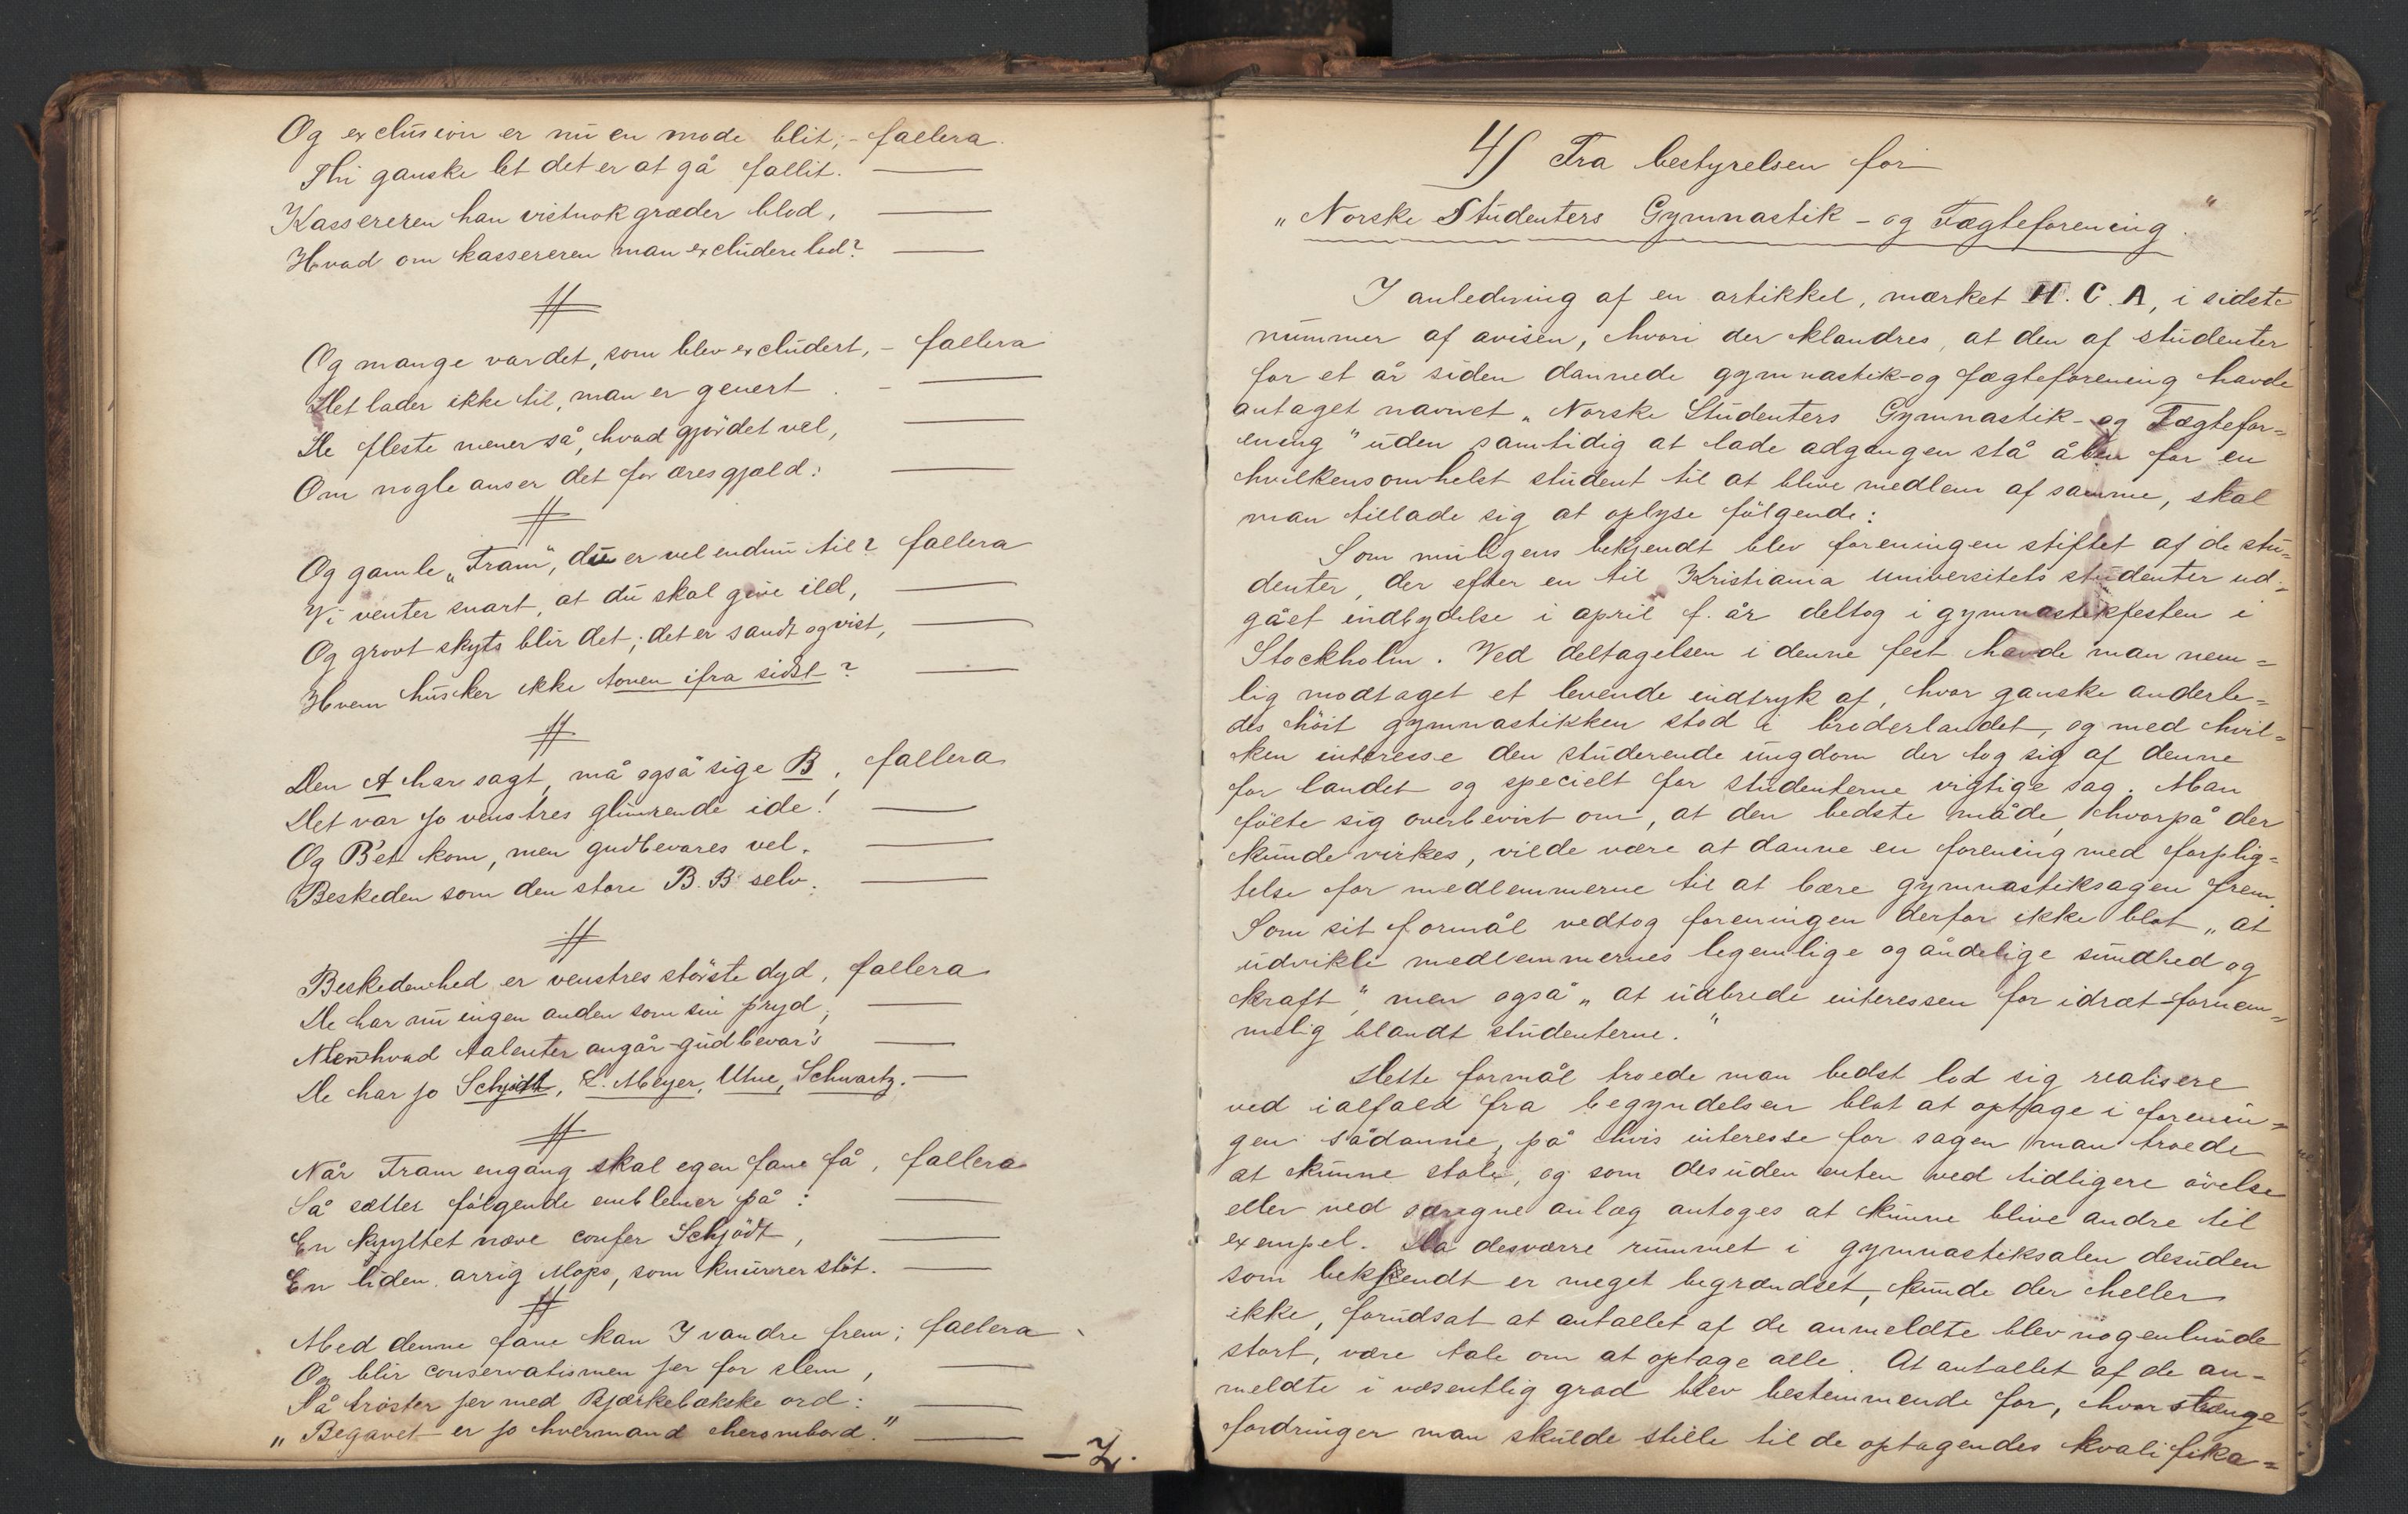 Og exclusion er nu en mode blit; - fallera.
Thi ganske let det er at gå fallit. —
Kassereren han vistnok græder blod, —
Hvad om kassereren man excludere lod? —
Og mange var det, som blev excludert, - fallera
Det lader ikke til, man er genert. - —
De fleste mener så, hvad gjør det vel, —
Om nogle anser det for æresgjæld: —
Og gamle „Fram“, du er vel endnu til? fallera
Vi venter snart, at du skal give ild, —
Og grovt skyts blir det; det er sandt og vist, —
Hvem husker ikke tonen ifra sidst? —
Den A har sagt, må også sige B, fallera
Det var jo venstres glimrende ide! —
Og B'et kom, men gudbevares vel. —
Beskeden som den store B. B. selv. —
Beskedenhed er venstres störste dyd, fallera
De har nu ingen anden som sin pryd; —
Men hvad talenter angår - gudbevar's —
De har jo Schjödt, L. Meyer, Uhue, Schwartz. —
Når Fram engang skal egen fane få, fallera
Så sættes følgende emblemer på: —
En knyttet næve confer Schjödt, —
En liden arrig Mops, som knurrer stöt. —
Med denne fane kan I vandre frem; fallera
Og blir conservatismen jer for slem, —
Så tröster jer med Bjærkebækske ord: —
„Begavet er jo hvermand herombord.“ —
— Z.
4) Fra bestyrelsen for
„Norske Studenters Gymnastik- og Fægteforening.“
I anledning af en artikkel, mærket H. C. A, i sidste
nummer af avisen, hvori der klandres, at den af studenter
for et år siden dannede gymnastik- og fægteforening havde
antaget navnet „Norske Studenters Gymnastik- og Fægtefor=
ening“ uden samtidig at lade adgangen stå åben for en
hvilkensomhelst student til at blive medlem af samme, skal
man tillade sig at oplyse følgende:
Som muligens bekjendt blev foreningen stiftet af de stu=
denter, der efter en til Kristiania universitets studenter ud=
gået indbydelse i april f. år deltog i gymnastikfesten i
Stockholm. Ved deltagelsen i denne fest havde man nem=
lig modtaget et levende indtryk af, hvor ganske anderle=
des höit gymnastikken stod i broderlandet, og med hvil=
ken interesse den studerende ungdom der tog sig af denne
for landet og specielt for studenterne vigtige sag. Man
følte sig overbevist om, at den bedste måde, hvorpå der
kunde virkes, vilde være at danne en forening med forplig=
telse for medlemmerne til at bære gymnastiksagen frem.
Som sit formål vedtog foreningen derfor ikke blot „at
udvikle medlemmernes legemlige og åndelige sundhed og
kraft“, men også „at udbrede interessen for idræt fornem=
melig blandt studenterne.“
Dette formål troede man bedst lod sig realisere
ved ialfald fra begyndelsen blot at optage i forenin=
gen sådanne, på hvis interesse for sagen man troede
at kunne stole, og som desuden enten ved tidligere övelse
eller ved særegne anlæg antoges at kunne blive andre til
exempel. Da desværre rummet i gymnastiksalen desuden
som bekjendt er meget begrændset, kunde der heller
ikke, forudsat at antallet af de anmeldte blev nogenlunde
stort, være tale om at optage alle. At antallet af de an=
meldte i væsentlig grad blev bestemmende for, hvor strænge
fordringer man skulde stille til de optagendes kvalifika=